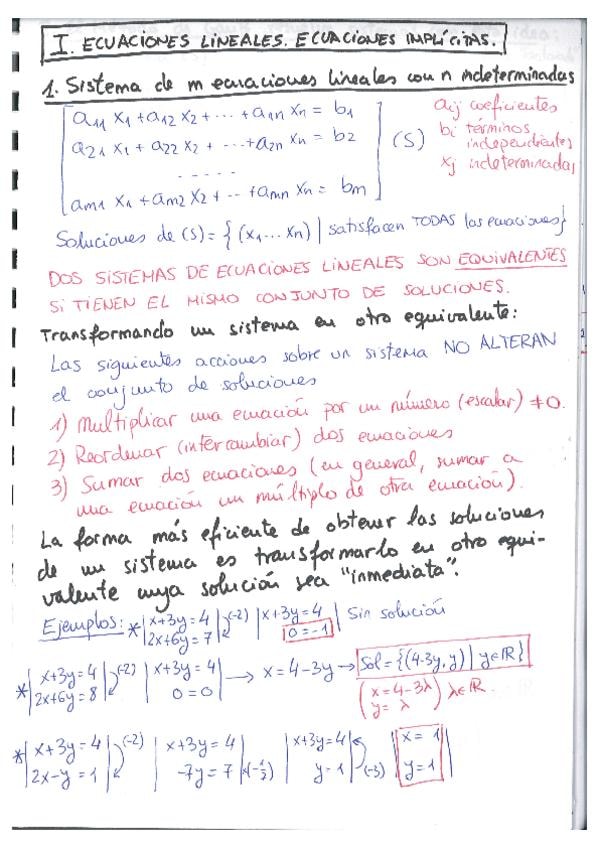 I. ECUACIONES LINEALES. ECUACIONES IMPLÍCITAS.
1. Sistema de m ecuaciones lineales con n indeterminadas
a11 x1 + a12 x2 + ... + a1n xn = b1
a21 x1 + a22 x2 + ... + a2n xn = b2
.....
am1 x1 + am2 x2 + ... + amn xn = bm
(S)
aij coeficientes
bi términos
independientes
xj indeterminadas
Soluciones de (S) = { (x1 ... xn) | satisfacen TODAS las ecuaciones}
DOS SISTEMAS DE ECUACIONES LINEALES SON EQUIVALENTES
SI TIENEN EL MISMO CONJUNTO DE SOLUCIONES.
Transformando un sistema en otro equivalente:
Las siguientes acciones sobre un sistema NO ALTERAN
el conjunto de soluciones
1) Multiplicar una ecuación por un número (escalar) ≠0.
2) Reordenar (intercambiar) dos ecuaciones
3) Sumar dos ecuaciones (en general, sumar a
una ecuación un múltiplo de otra ecuación).
La forma más eficiente de obtener las soluciones
de un sistema es transformarlo en otro equi-
valente cuya solución sea "inmediata".
Ejemplos: * | x+3y=4 | (-2) | x+3y=4 | Sin solución
| 2x+6y=7 | | 0=-1 |
* | x+3y=4 | (-2) | x+3y=4 | → x=4-3y → Sol = {(4-3y, y) | y∈ℝ}
| 2x+6y=8 | | 0=0 |
(x=4-3λ
y=λ) λ∈ℝ.
* | x+3y=4 | (-2) | x+3y=4 | | x+3y=4 | | x=1 |
| 2x-y=1 | | -7y=7 | | y=1 | (-3) | y=1 |